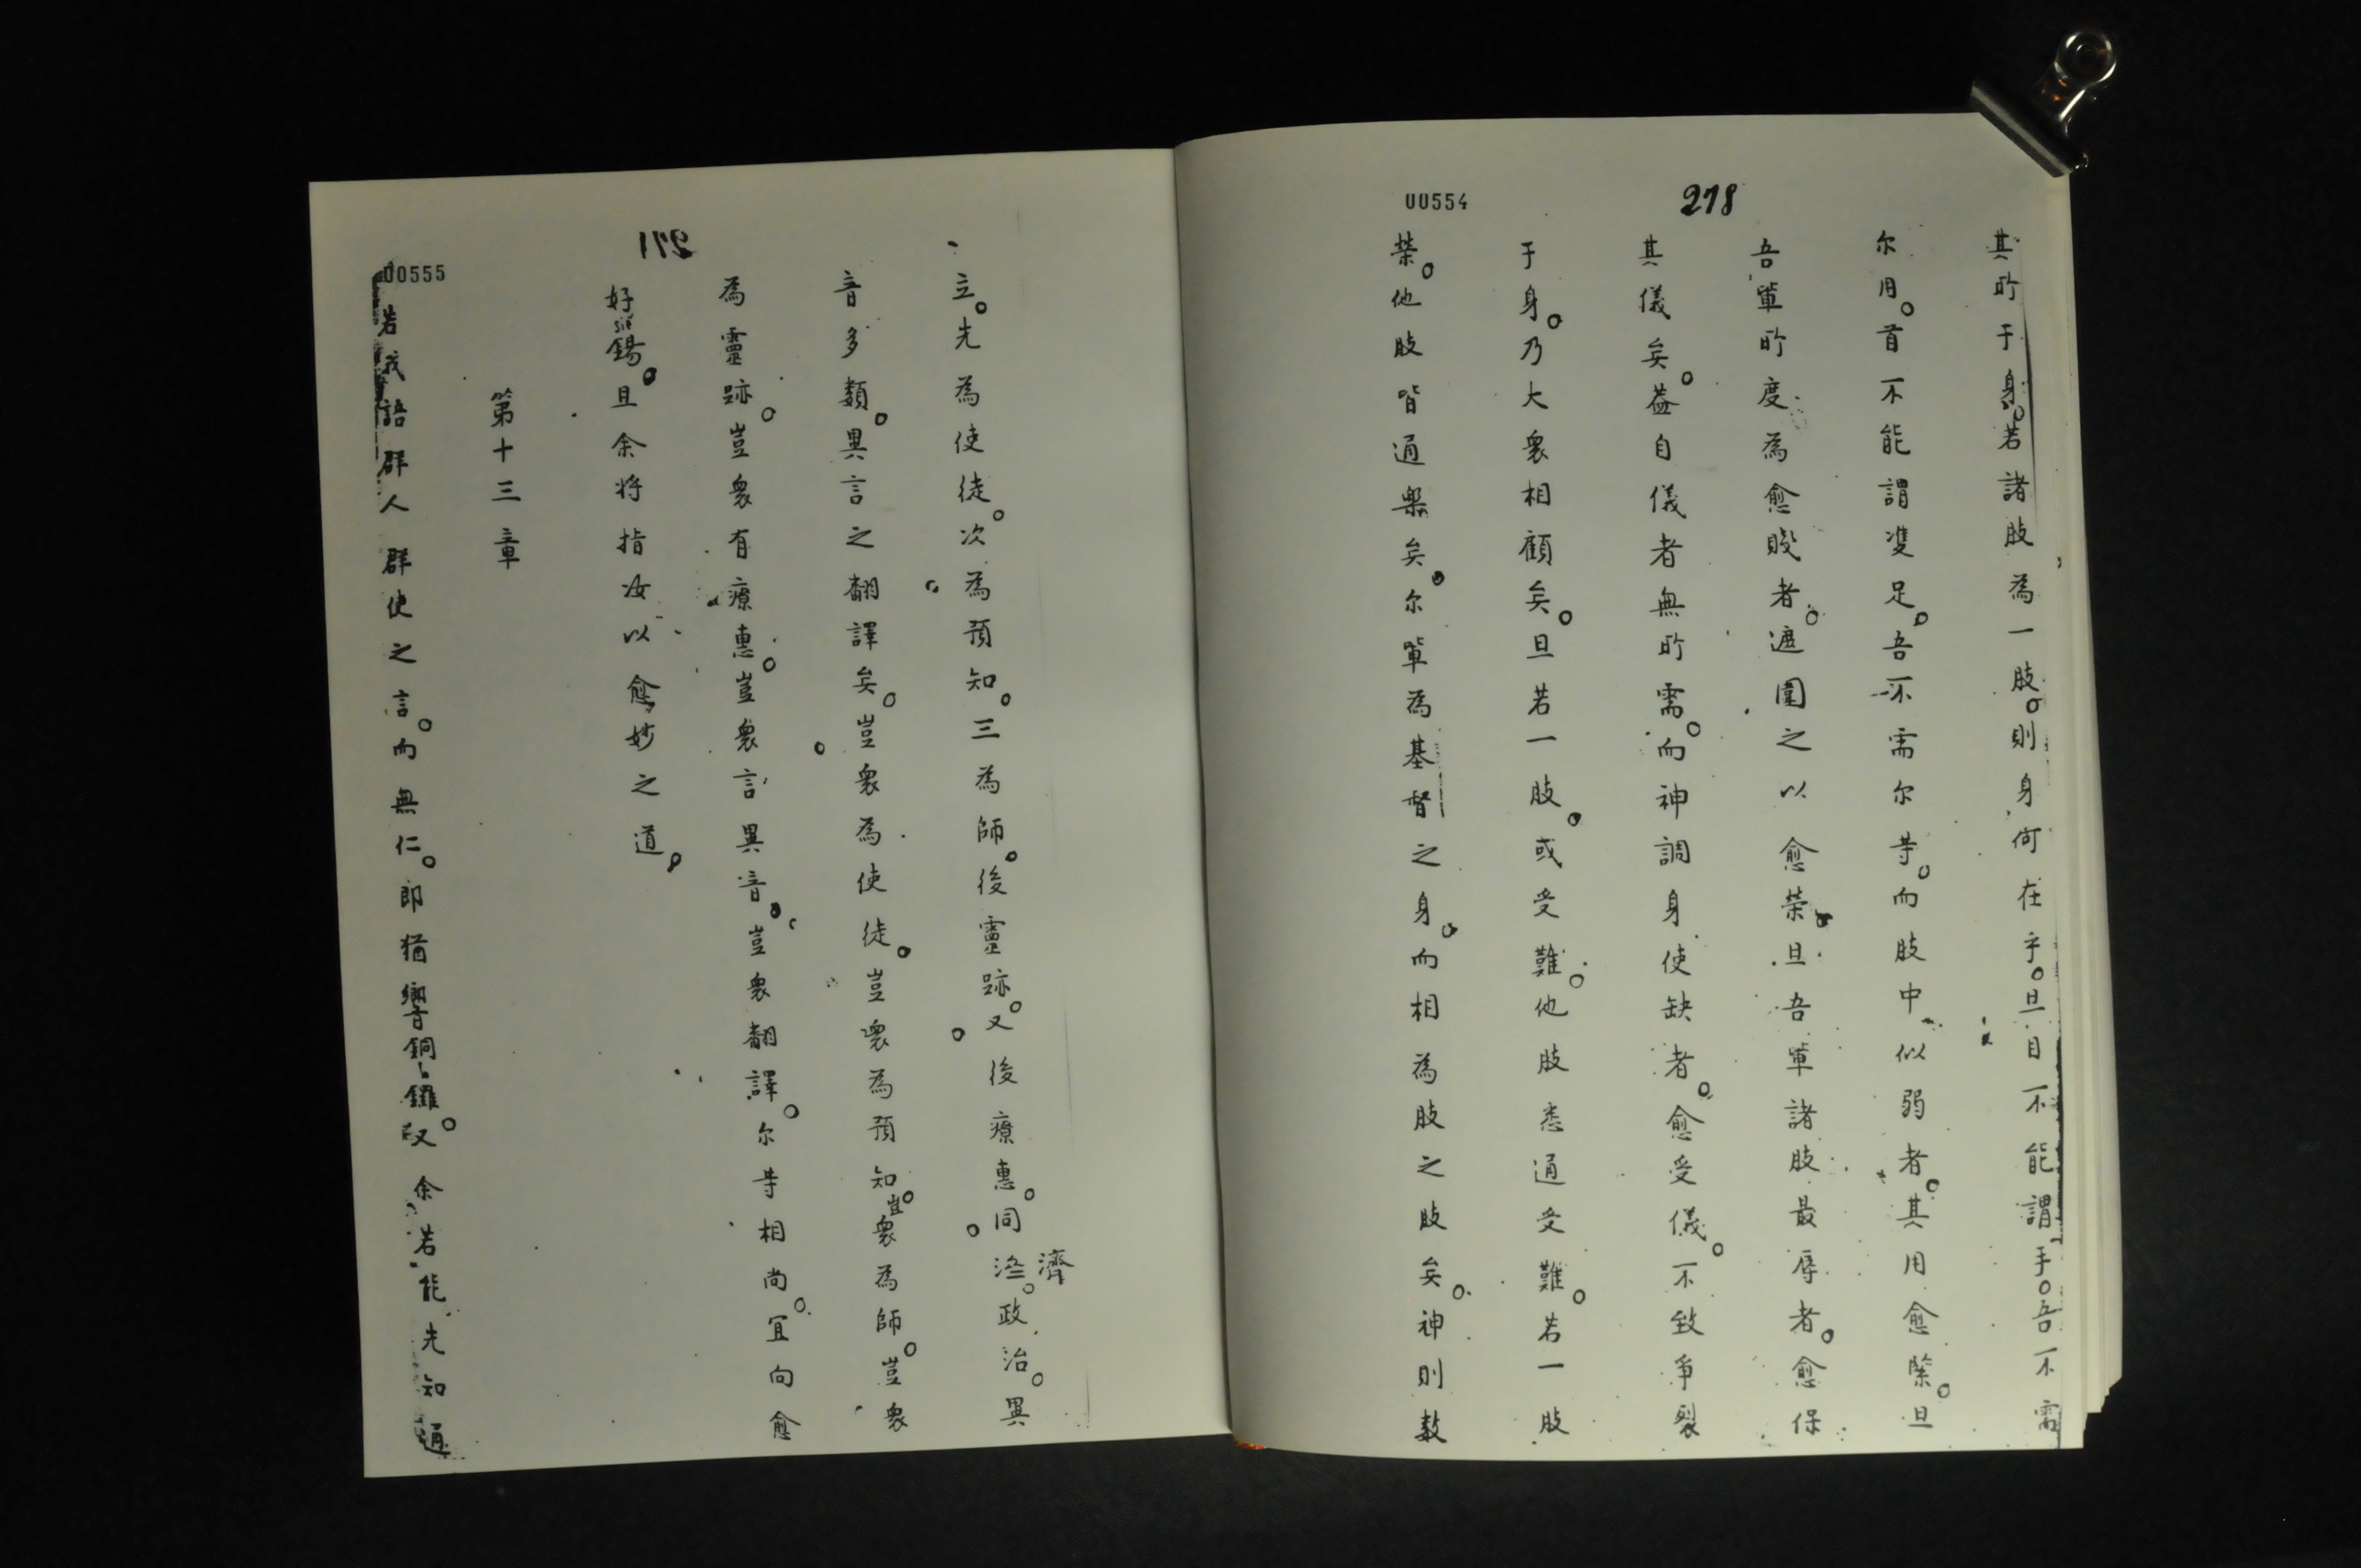 00554
278
其所于身。若諸肢為一肢。則身何在乎。旦目不能謂手。吾不需
尔用。首不能謂雙足。吾不需尔等。而肢中似弱者。其用愈緊。旦
吾軰所度為愈賤者。遮圍之以愈榮。旦吾軰諸肢最辱者。愈保
其儀矣。葢自儀者無所需。而神調身使缺者。愈受儀。不致爭裂
于身。乃大衆相顧矣。旦若一肢。或受難。他肢悉通受難。若一肢
榮。他肢皆通樂矣。尔軰為基督之身。而相為肢之肢矣。神則數
271
00555
立。先為使徒。次為預知。三為師。後靈跡。又後療惠。同濟。政治。異
音多類。異言之翻譯矣。豈衆為使徒。豈衆為預知。豈衆為師。豈衆
為靈跡。豈衆有療惠。豈衆言異音。豈衆翻譯。尔等相尚。宜向愈
好錫。旦余将指汝以愈妙之道。
第十三章
若我語群人群使之言。而無仁。即猶響銅鑼。又余若能先知通